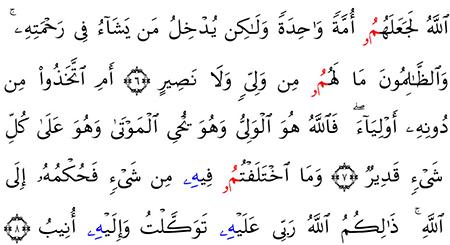 اللَّهُ لَجَعَلَهُمُۥ أُمَّةً وَٰحِدَةً وَلَٰكِن يُدْخِلُ مَن يَشَآءُ فِى رَحْمَتِهِۦ ۚ
وَالظَّٰلِمُونَ مَا لَهُمُۥ مِن وَلِىٍّ وَلَا نَصِيرٍ ﴿٦﴾ أَمِ اتَّخَذُوا۟ مِن
دُونِهِۦٓ أَوْلِيَآءَ ۖ فَاللَّهُ هُوَ الْوَلِىُّ وَهُوَ يُحْىِ الْمَوْتَىٰ وَهُوَ عَلَىٰ كُلِّ
شَىْءٍ قَدِيرٌ ﴿٧﴾ وَمَا اخْتَلَفْتُمُۥ فِيهِۦ مِن شَىْءٍ فَحُكْمُهُۥٓ إِلَى
اللَّهِ ۚ ذَٰلِكُمُ اللَّهُ رَبِّى عَلَيْهِۦ تَوَكَّلْتُ وَإِلَيْهِۦ أُنِيبُ ﴿٨﴾